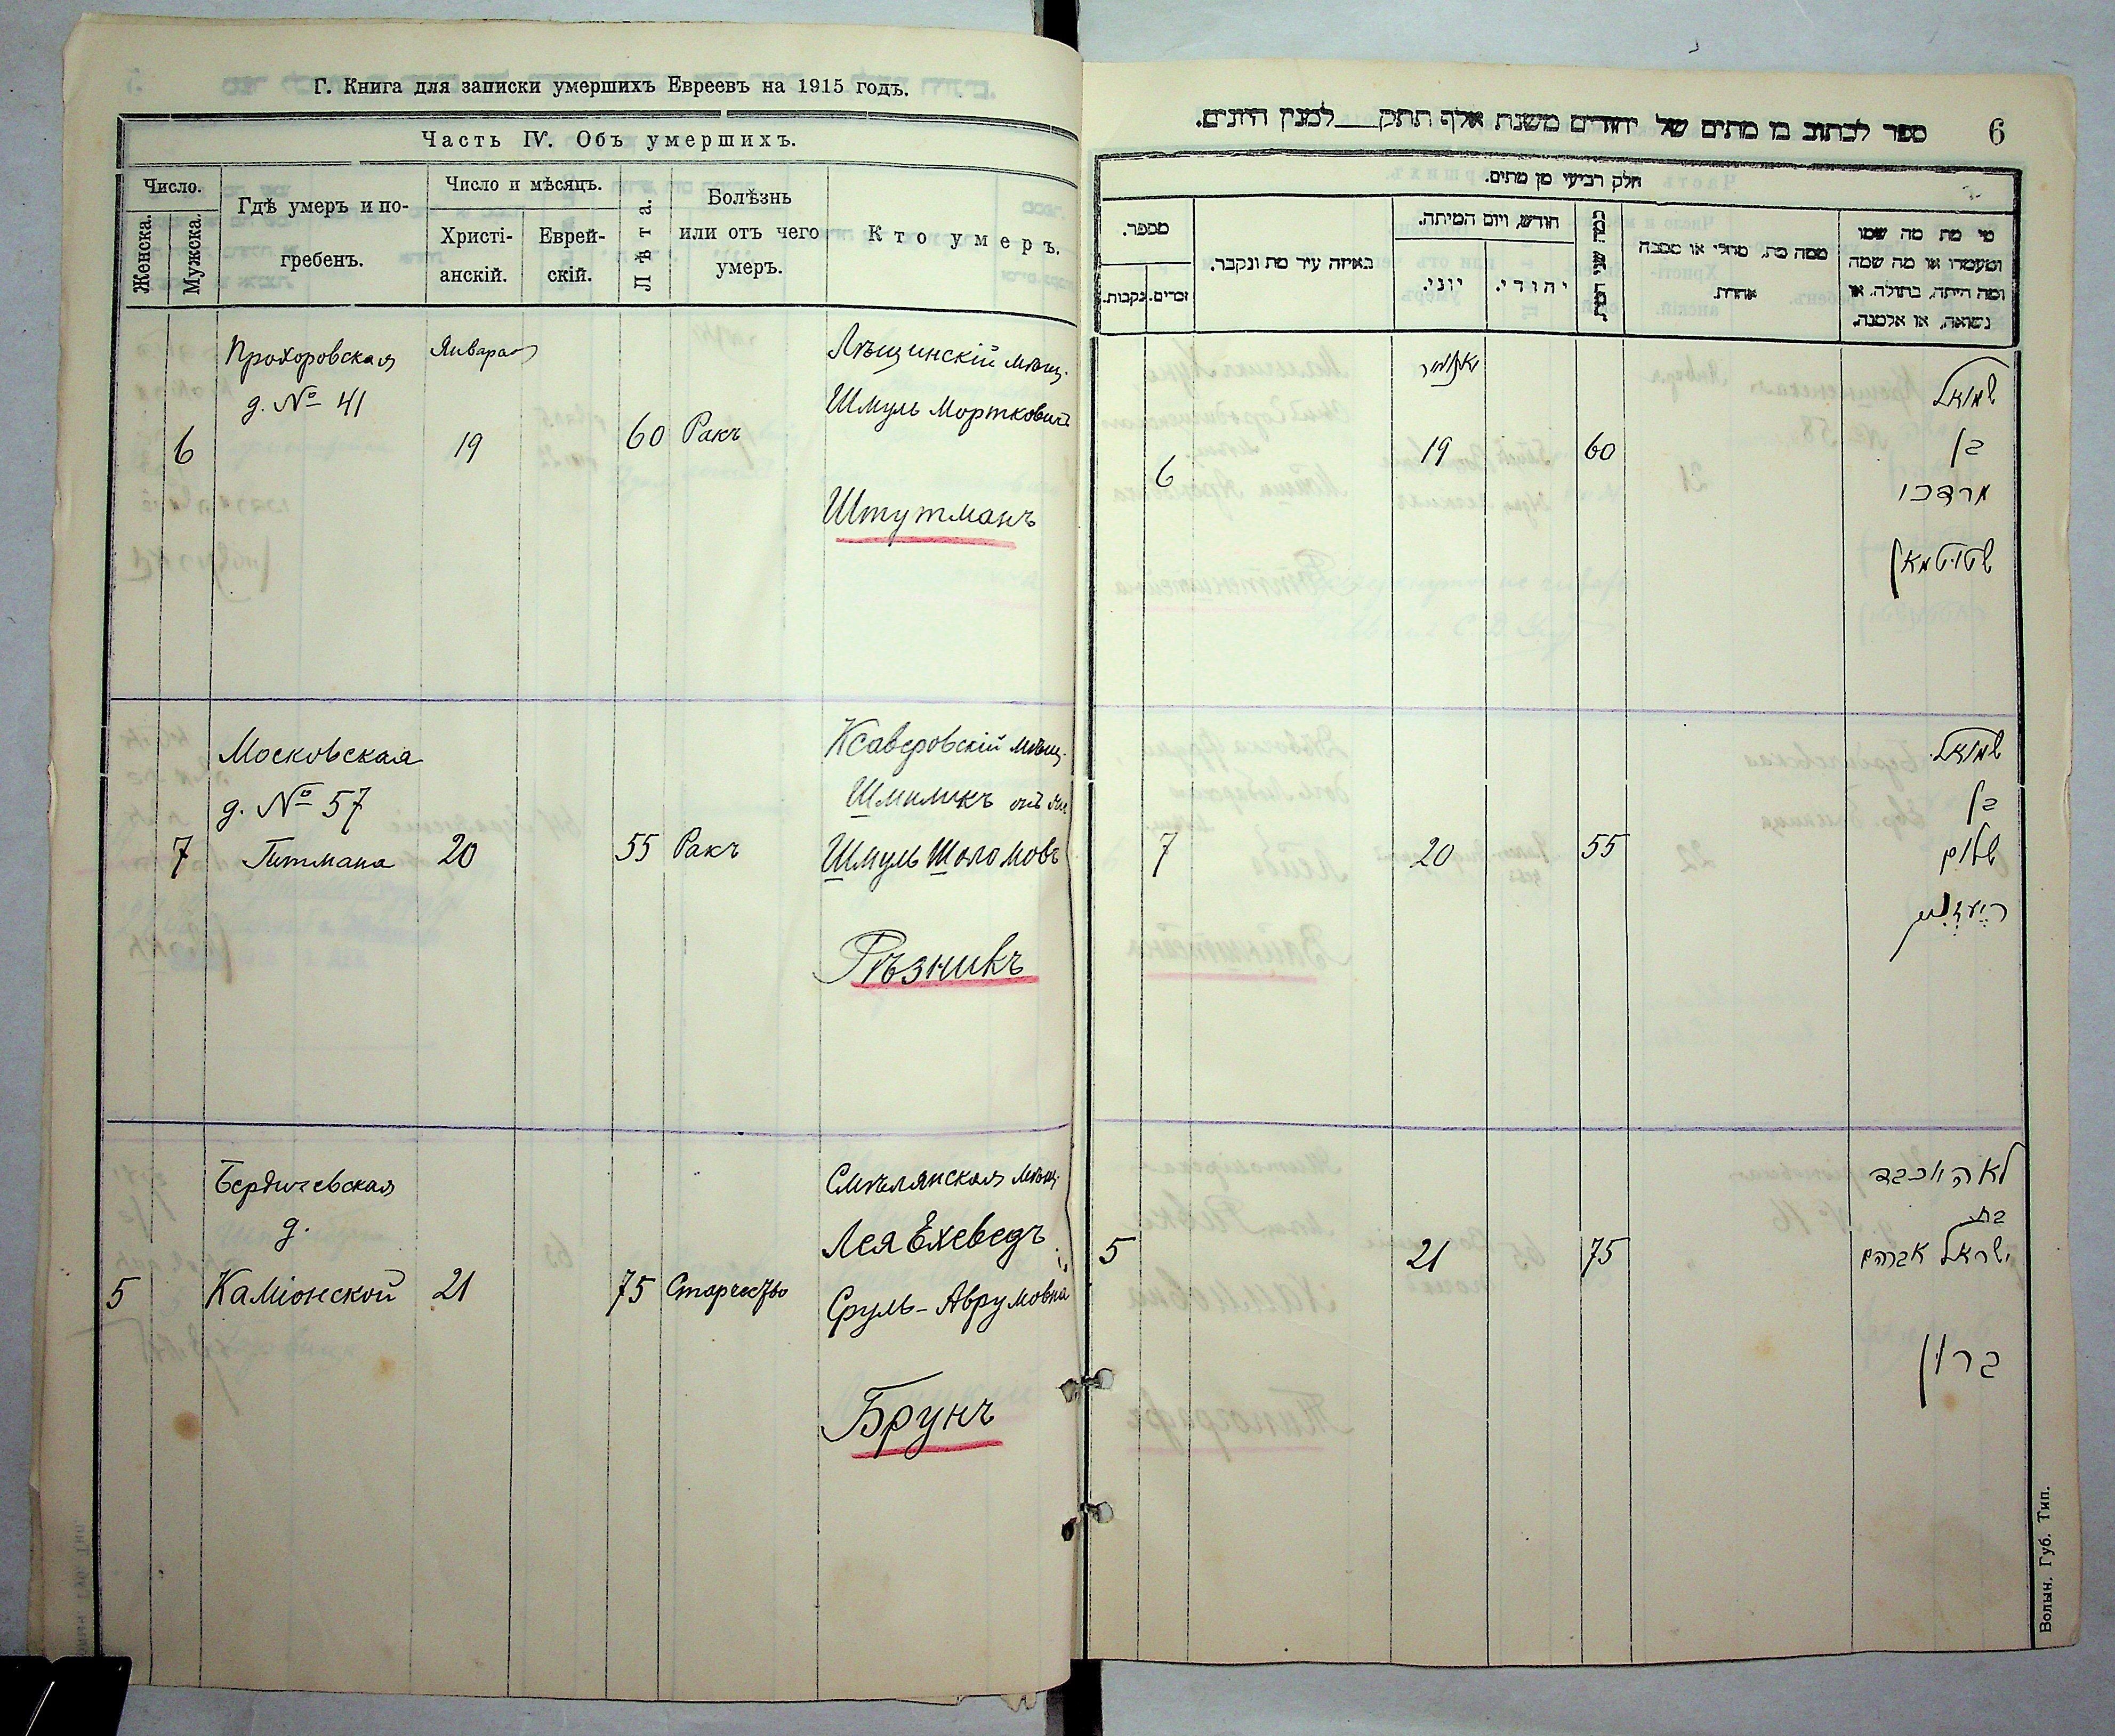 Г. Книга для записки умершихъ Евреевъ на 1915 годъ.
Часть IV. Объ умершихъ.
Число.
Женска.
Мужска.
Гдѣ умеръ и по-
гребенъ.
Число и мѣсяцъ.
Христі-
анскій.
Еврей-
скій.
Лѣта.
Болѣзнь
или отъ чего
умеръ.
Кто умеръ.
Прохоровская
д. № 41
6
Января
19
60
Ракъ
Лѣщинскій мѣщ.
Шмуль Мортковичъ
Штутманъ
Московская
д. № 57
7
Гитмана
20
55
Ракъ
Ксаверовскій мѣщ.
Шмиликъ
Шмуль Шоломовъ
Рѣзникъ
Бердичевская
д.
5
Каміонской
21
75
Старчество
Смѣлянская мѣщ.
Лея Ехеведъ
Сруль-Аврумовна
Брунъ
6
ספר לכתוב בו מתים של יהודים משנת אלף תתק___למנין היונים.
חלק רביעי מן מתים.
מספר.
נקבות.
זכרים.
באיזה עיר מת ונקבר.
חודש, ויום המיתה.
יוני.
יהודי.
כמה שני המת
ממה מת, מחלי או מסבה
אחרת.
מי מת מה שמו
ומעמדו או מה שמה
ומה היתה, בתולה, או
נשואה, או אלמנה.
6
יאנואר
19
60
שמואל
בן
מרדכי
שטוטמאן
7
20
55
שמואל
בן
שלום
רעזניק
5
21
75
לאה יוכבד
בת
ישראל אברהם
ברון
Волын. Губ. Тип.